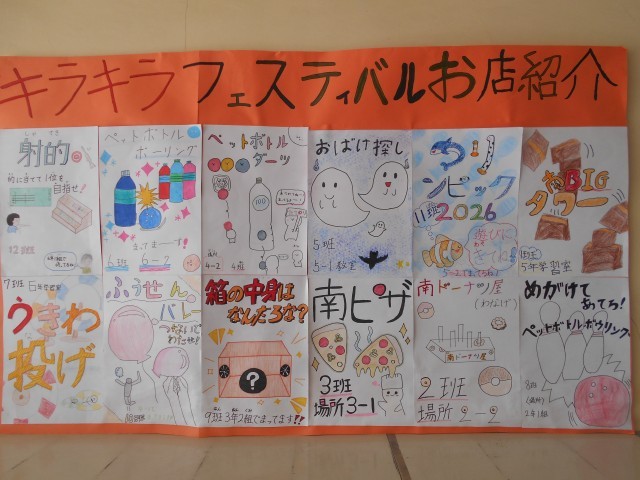 キラキラフェスティバルお店紹介
しゃてき
射的
的に当てて1位を
目指せ!
12班
ペットボトル
ボーリング
まってまーす!
6班 6-2
ペットボトル
ダーツ
100
4-2 4班
おばけ探し
5班
5-1教室
ンピック
11班
2026
遊びに
きてね
南BIG
タワー
5年学習室
7班
うきわ
投げ
ふうせん
バレー
箱の中身は
なんだろな?
?
9班3年2組でまってます!!
南ピザ
3班
場所3-1
南ドーナッツ屋
(わなげ)
南ドーナツ屋
2班
場所2-2
めがけて
あてろ!
ペットボトルボウリング
8班
(場所)
2年1組